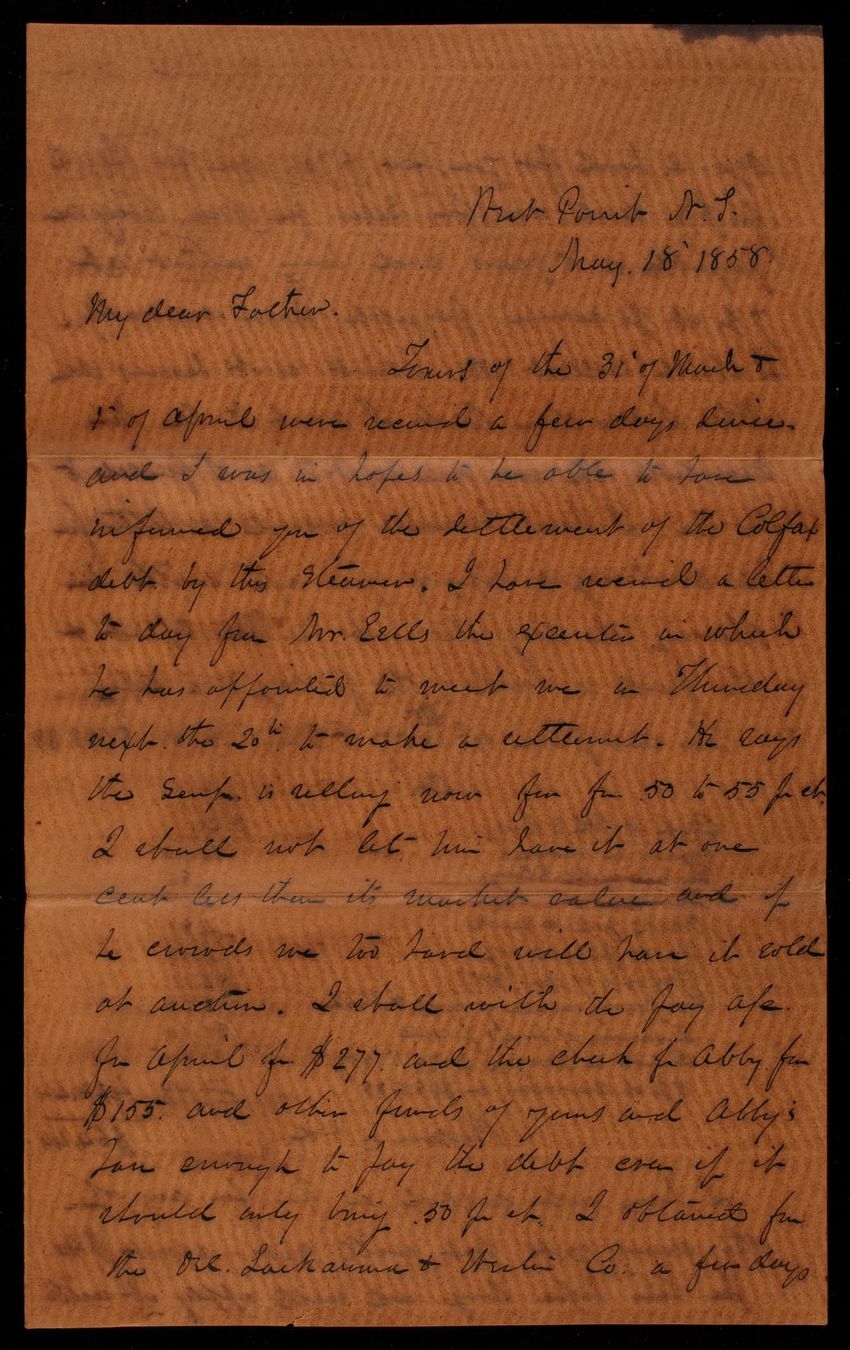 West Point N. Y.
May. 18' 1858
My dear Father.
Yours of the 31' of March &
1' of April were received a few days since.
and I was in hopes to be able to have
informed you of the settlement of the Colfax
debt by this Steamer. I have received a letter
to day from Mr. Eells the executor in which
he has appointed to meet me on Thursday
next the 20th to make a settlement. He says
the Scrip. is selling now for from .50 to 55 pr ct.
I shall not let him have it at one
cent less than its market value and if
he crowds me too hard will have it sold
at auction. I shall with the pay a/c.
for April for $277. and the check for Abby for
$155. and other funds of yours and Abby's
have enough to pay the debt even if it
should only bring .50 pr ct. I obtained from
the Del. Lackawanna & Western Co. a few days